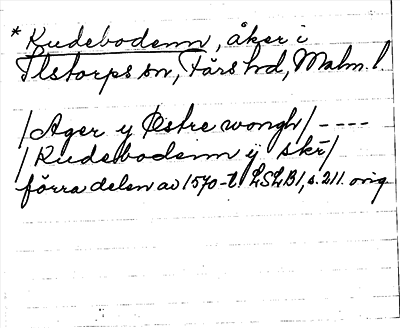 *Kudebodenn, åker i
Ilstorps sn, Färs hd, Malm. l.
/Ager y Østre wongh/ ----
/Kudebodenn ÿ skr̄/
förra delen av 1570-t. LSLB1, s. 211. orig